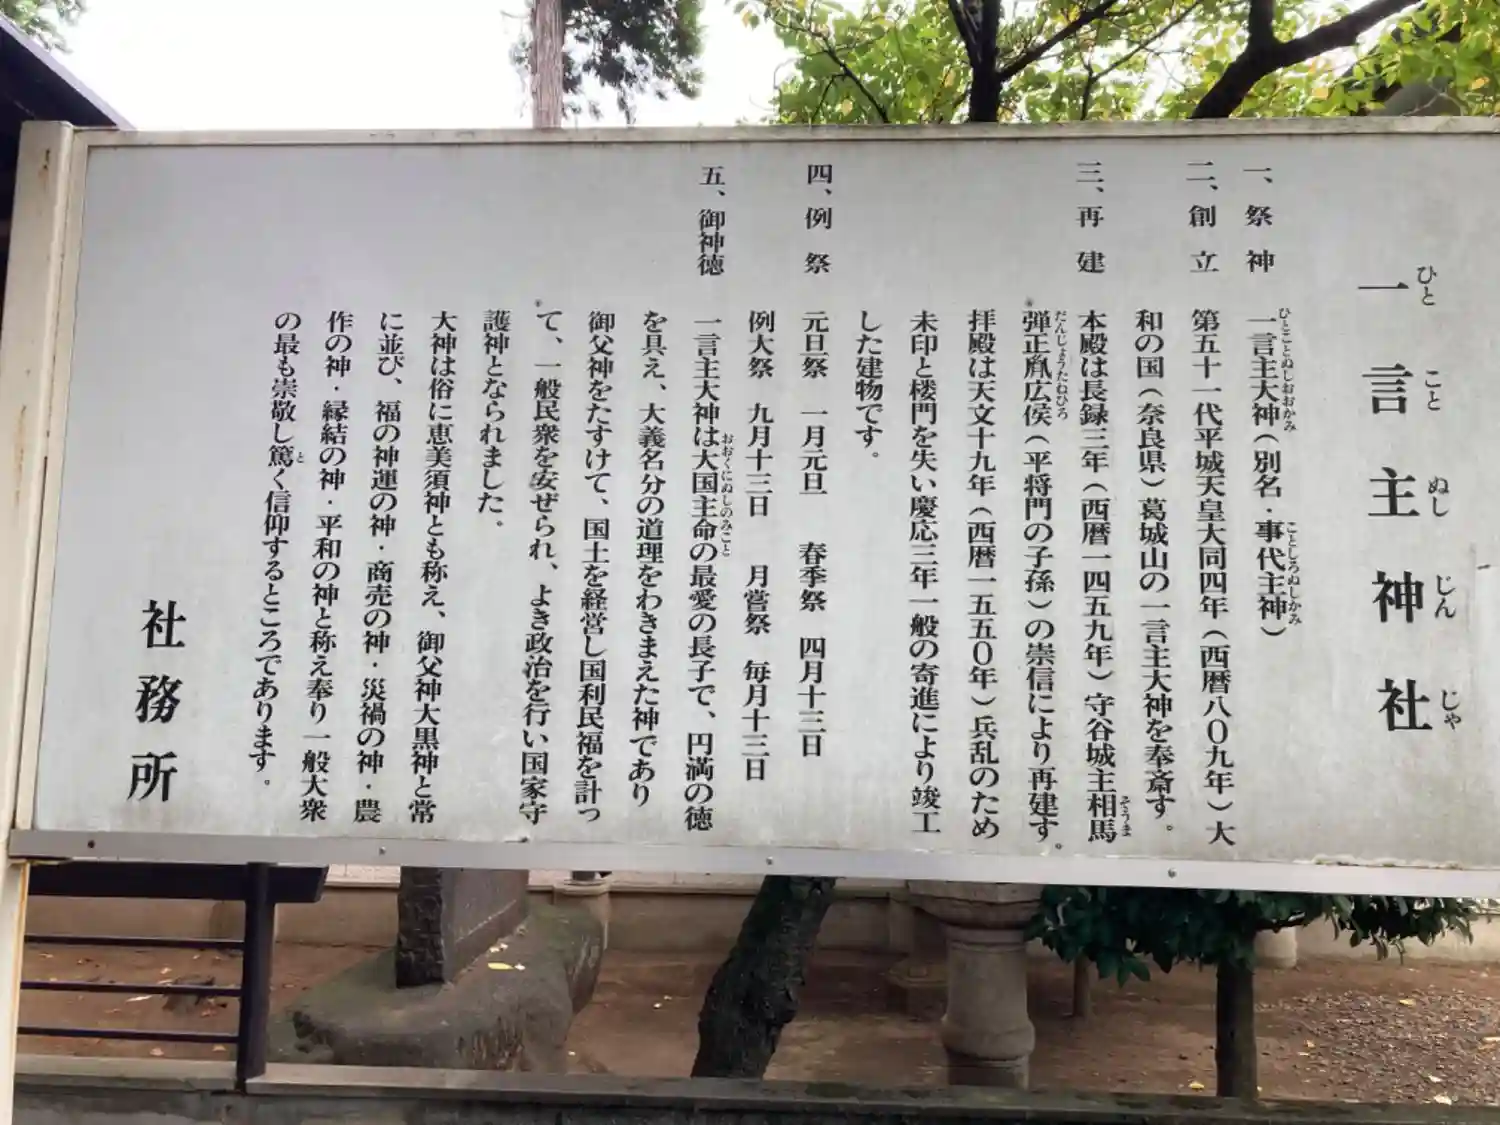 一言主神社
ひと こと ぬし じん じゃ
一、祭神 一言主大神(別名・事代主神)
ひとことぬしおおかみ ことしろぬしかみ
二、創立 第五十一代平城天皇大同四年(西暦八〇九年)大
和の国(奈良県)葛城山の一言主大神を奉斎す。
三、再建 本殿は長録三年(西暦一四五九年)守谷城主相馬
そうま
弾正胤広侯(平将門の子孫)の崇信により再建す。
だんじょうたねひろ
拝殿は天文十九年(西暦一五五〇年)兵乱のため
未印と楼門を失い慶応三年一般の寄進により竣工
した建物です。
四、例祭 元旦祭 一月元旦 春季祭 四月十三日
例大祭 九月十三日 月嘗祭 毎月十三日
五、御神徳 一言主大神は大国主命の最愛の長子で、円満の徳
おおくにぬしのみこと
を具え、大義名分の道理をわきまえた神であり
御父神をたすけて、国土を経営し国利民福を計っ
て、一般民衆を安ぜられ、よき政治を行い国家守
護神となられました。
大神は俗に恵美須神とも称え、御父神大黒神と常
に並び、福の神運の神・商売の神・災禍の神・農
作の神・縁結の神・平和の神と称え奉り一般大衆
の最も崇敬し篤く信仰するところであります。
と
社務所